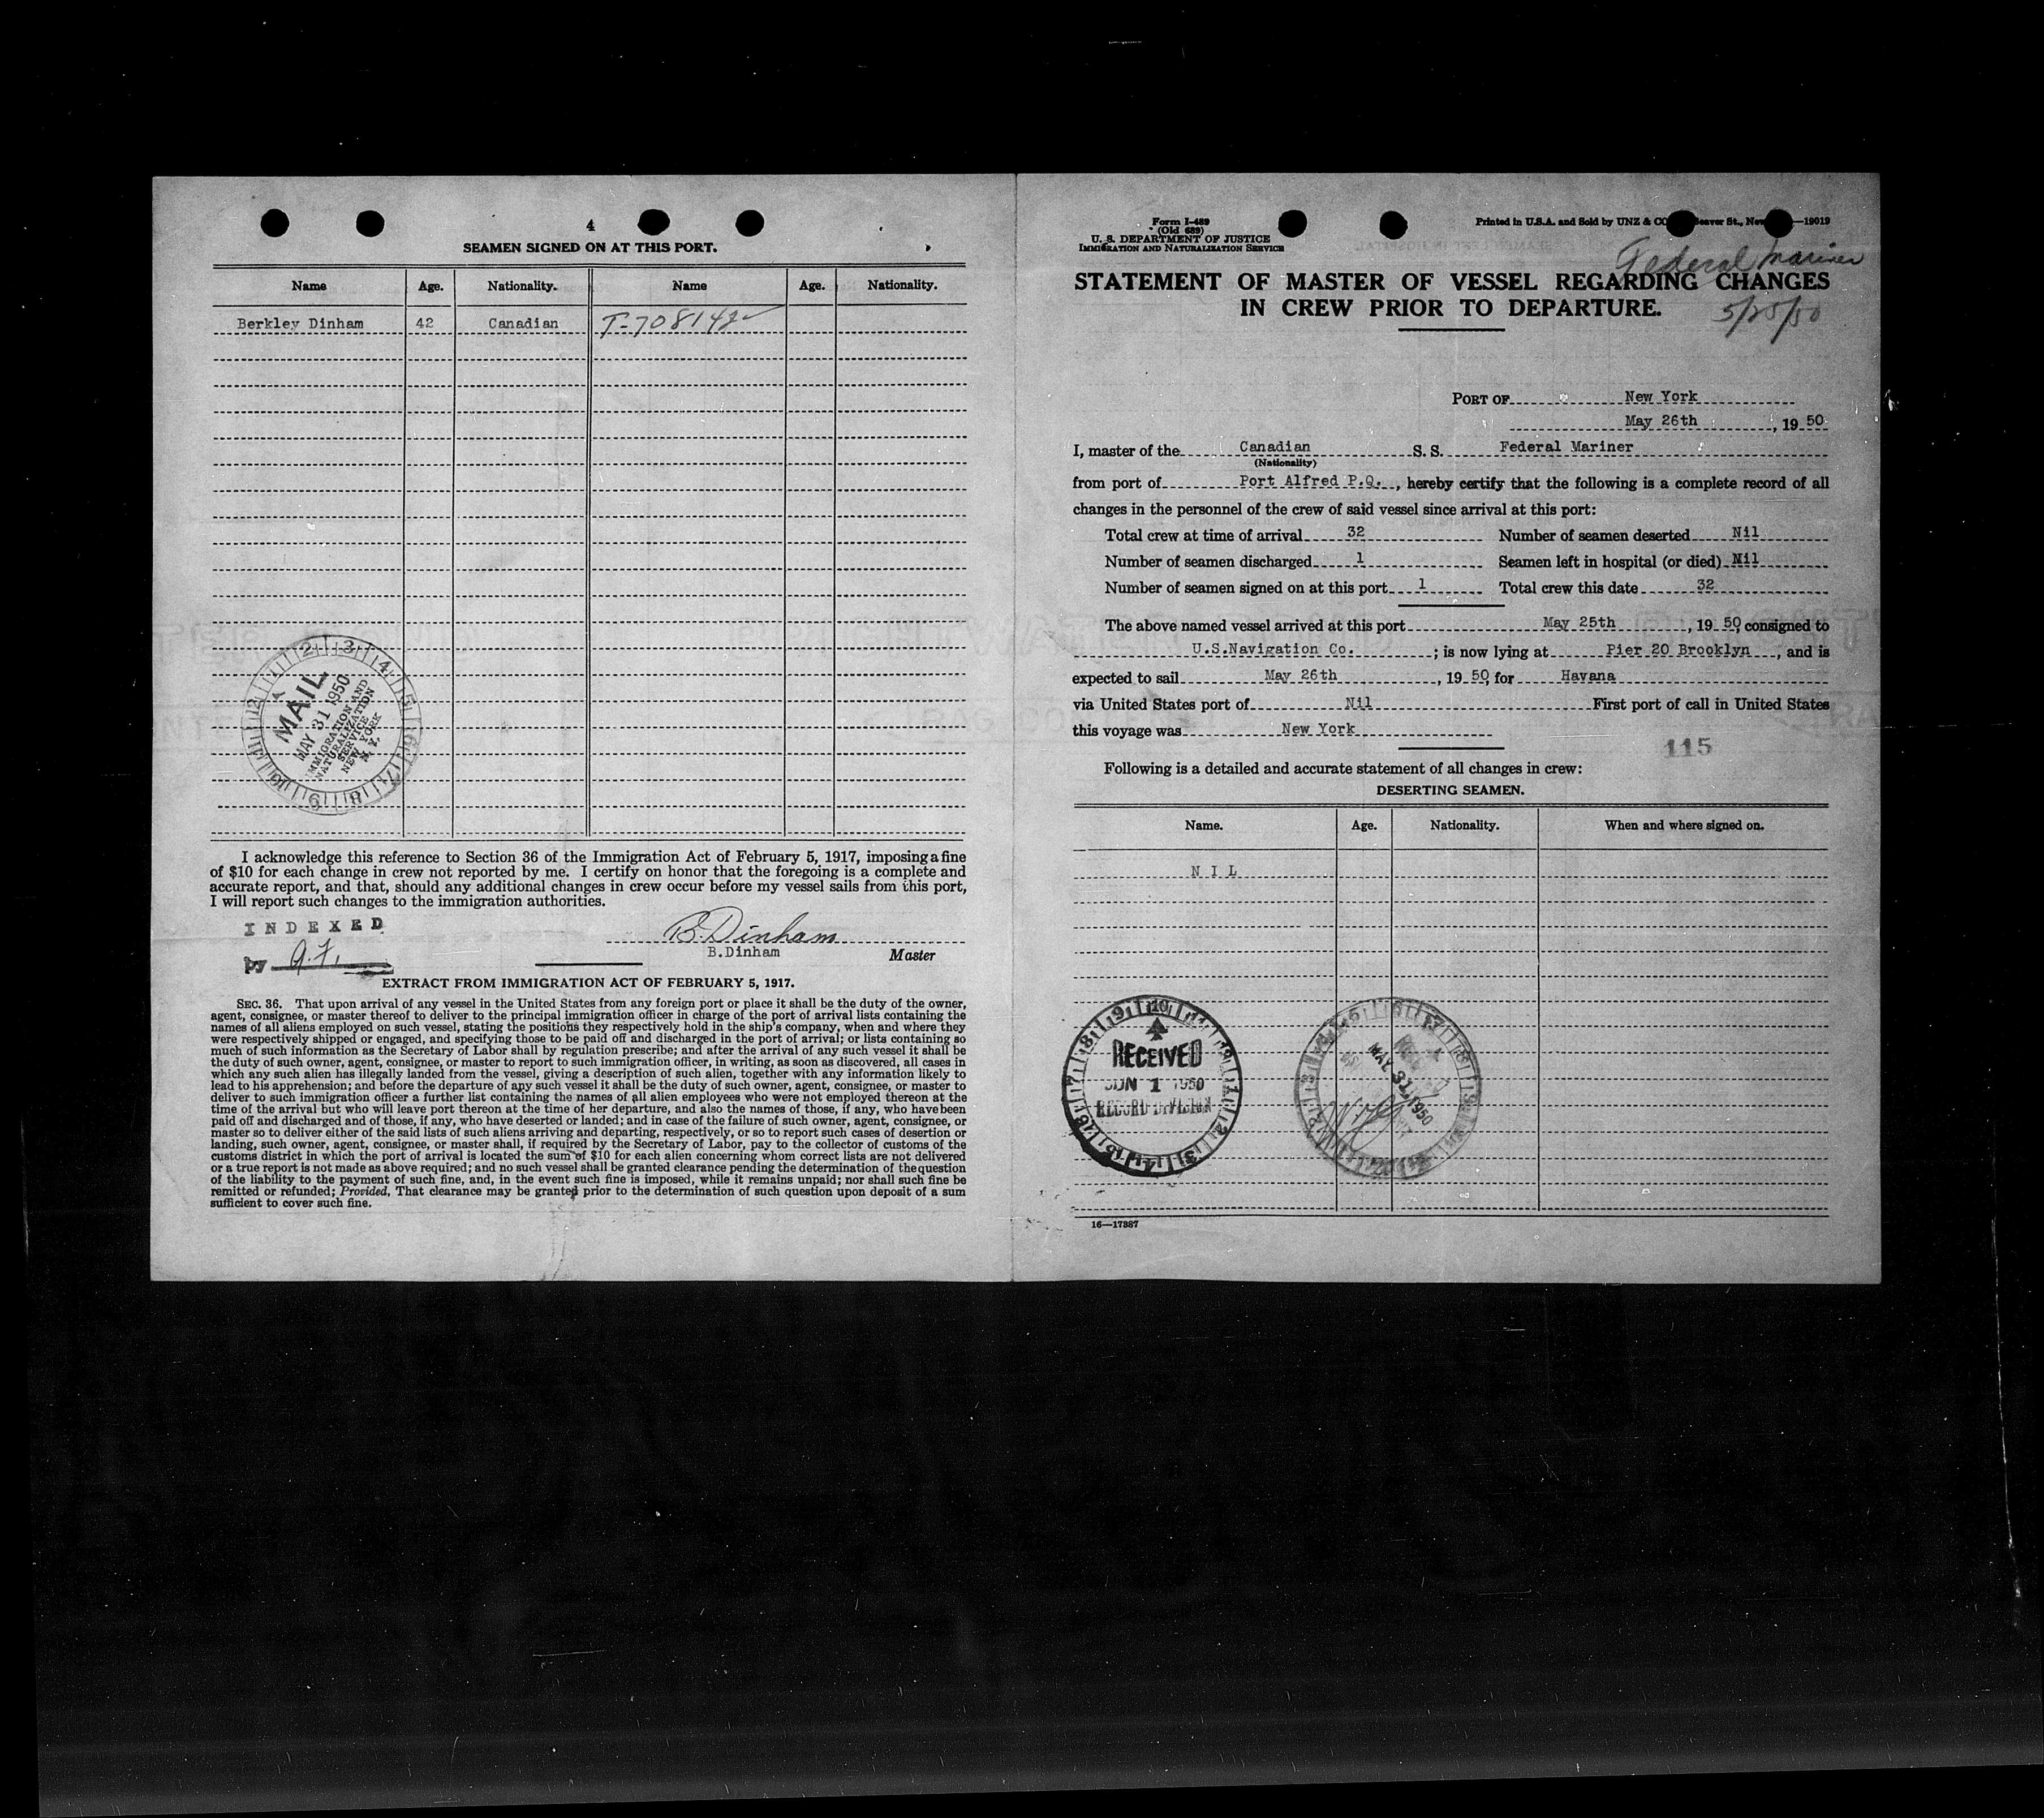 4
SEAMEN SIGNED ON AT THIS PORT.
Name Age. Nationality. Name Age. Nationality.
Berkley Dinham 42 Canadian T-708142
MAIL
MAY 31 1950
IMMIGRATION AND
NATURALIZATION
SERVICE
NEW YORK
N. Y.
I acknowledge this reference to Section 36 of the Immigration Act of February 5, 1917, imposing a fine
of $10 for each change in crew not reported by me. I certify on honor that the foregoing is a complete and
accurate report, and that, should any additional changes in crew occur before my vessel sails from this port,
I will report such changes to the immigration authorities.
INDEXED
by A.F.
B. Dinham
B.Dinham Master
EXTRACT FROM IMMIGRATION ACT OF FEBRUARY 5, 1917.
SEC. 36. That upon arrival of any vessel in the United States from any foreign port or place it shall be the duty of the owner,
agent, consignee, or master thereof to deliver to the principal immigration officer in charge of the port of arrival lists containing the
names of all aliens employed on such vessel, stating the positions they respectively hold in the ship's company, when and where they
were respectively shipped or engaged, and specifying those to be paid off and discharged in the port of arrival; or lists containing so
much of such information as the Secretary of Labor shall by regulation prescribe; and after the arrival of any such vessel it shall be
the duty of such owner, agent, consignee, or master to report to such immigration officer, in writing, as soon as discovered, all cases in
which any such alien has illegally landed from the vessel, giving a description of such alien, together with any information likely to
lead to his apprehension; and before the departure of any such vessel it shall be the duty of such owner, agent, consignee, or master to
deliver to such immigration officer a further list containing the names of all alien employees who were not employed thereon at the
time of the arrival but who will leave port thereon at the time of her departure, and also the names of those, if any, who have been
paid off and discharged and of those, if any, who have deserted or landed; and in case of the failure of such owner, agent, consignee, or
master so to deliver either of the said lists of such aliens arriving and departing, respectively, or so to report such cases of desertion or
landing, such owner, agent, consignee, or master shall, if required by the Secretary of Labor, pay to the collector of customs of the
customs district in which the port of arrival is located the sum of $10 for each alien concerning whom correct lists are not delivered
or a true report is not made as above required; and no such vessel shall be granted clearance pending the determination of the question
of the liability to the payment of such fine, and, in the event such fine is imposed, while it remains unpaid; nor shall such fine be
remitted or refunded; Provided, That clearance may be granted prior to the determination of such question upon deposit of a sum
sufficient to cover such fine.
Form I-489
(Old 689)
U. S. DEPARTMENT OF JUSTICE
IMMIGRATION AND NATURALIZATION SERVICE
Printed in U.S.A. and Sold by UNZ & CO. Beaver St., New —19019
Federal Mariner
STATEMENT OF MASTER OF VESSEL REGARDING CHANGES
IN CREW PRIOR TO DEPARTURE.
5/25/50
PORT OF New York
May 26th, 19 50
I, master of the Canadian S. S. Federal Mariner
(Nationality)
from port of Port Alfred P.Q., hereby certify that the following is a complete record of all
changes in the personnel of the crew of said vessel since arrival at this port:
Total crew at time of arrival 32 Number of seamen deserted Nil
Number of seamen discharged 1 Seamen left in hospital (or died) Nil
Number of seamen signed on at this port 1 Total crew this date 32
The above named vessel arrived at this port May 25th, 19 50, consigned to
U.S.Navigation Co.; is now lying at Pier 20 Brooklyn, and is
expected to sail May 26th, 19 50, for Havana
via United States port of Nil First port of call in United States
this voyage was New York
115
Following is a detailed and accurate statement of all changes in crew:
DESERTING SEAMEN.
Name. Age. Nationality. When and where signed on.
N I L
RECEIVED
JUN 1 1950
RECORD DIVISION
MAY 31 1950
16—17387